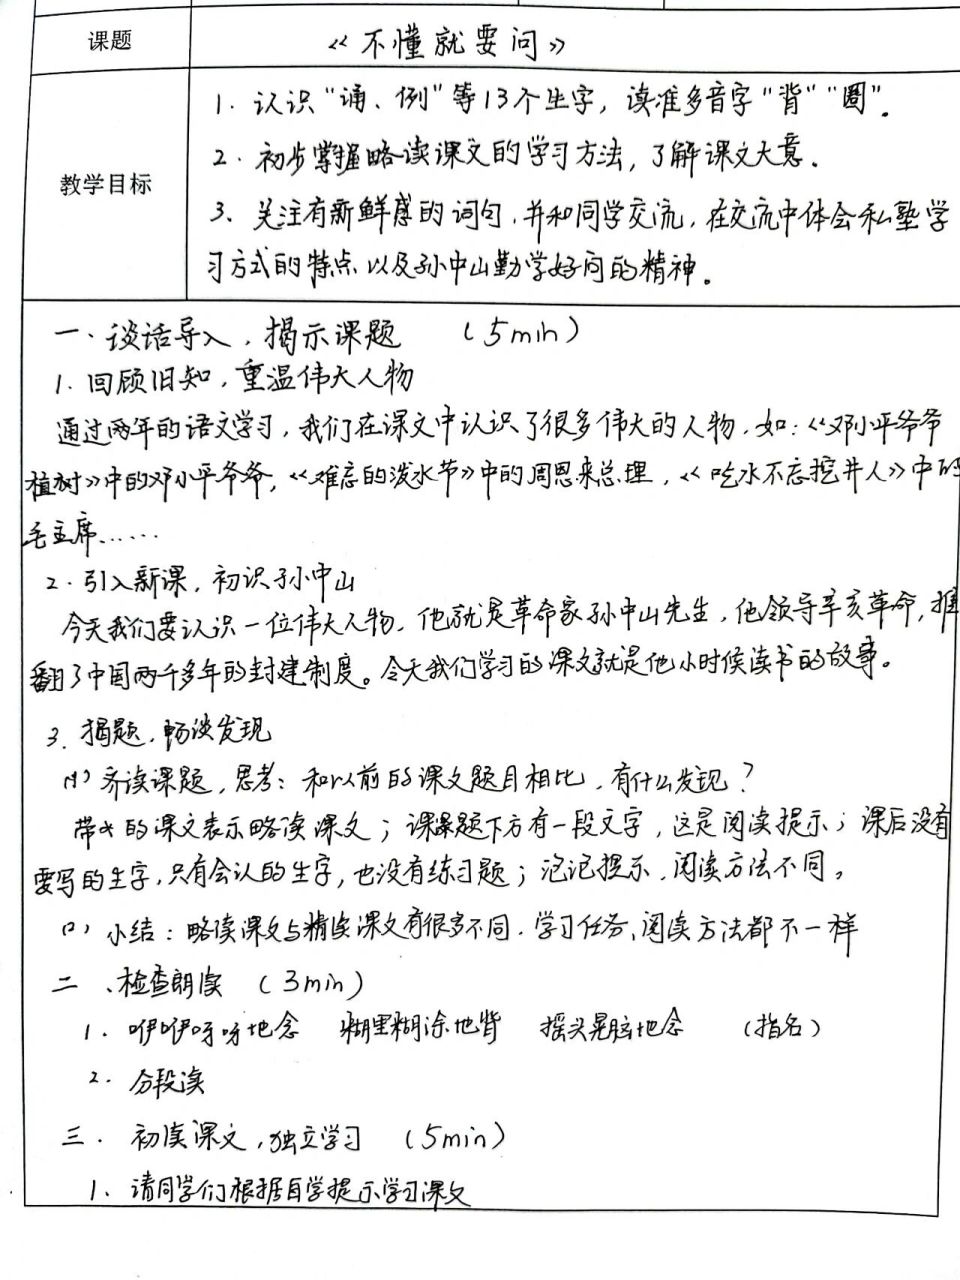 课题
《不懂就要问》
教学目标
1. 认识“诵、例”等13个生字，读准多音字“背”“圈”。
2. 初步掌握略读课文的学习方法，了解课文大意。
3、关注有新鲜感的词句，并和同学交流，在交流中体会私塾学
习方式的特点以及孙中山勤学好问的精神。
一、谈话导入，揭示课题 （5min）
1. 回顾旧知，重温伟大人物
通过两年的语文学习，我们在课文中认识了很多伟大的人物，如：《邓小平爷爷
植树》中的邓小平爷爷，《难忘的泼水节》中的周恩来总理，《吃水不忘挖井人》中的
毛主席……
2. 引入新课，初识孙中山
今天我们要认识一位伟大人物，他就是革命家孙中山先生，他领导辛亥革命，推
翻了中国两千多年的封建制度。今天我们学习的课文就是他小时候读书的故事。
3. 揭题，畅谈发现
(1) 齐读课题，思考：和以前的课文题目相比，有什么发现？
带*的课文表示略读课文；课题下方有一段文字，这是阅读提示；课后没有
要写的生字，只有会认的生字，也没有练习题；泡泡提示，阅读方法不同。
(2) 小结：略读课文与精读课文有很多不同，学习任务、阅读方法都不一样
二、检查朗读 （3min）
1. 咿咿呀呀地念 糊里糊涂地背 摇头晃脑地念 （指名）
2. 分段读
三. 初读课文，独立学习 （5min）
1、请同学们根据自学提示学习课文